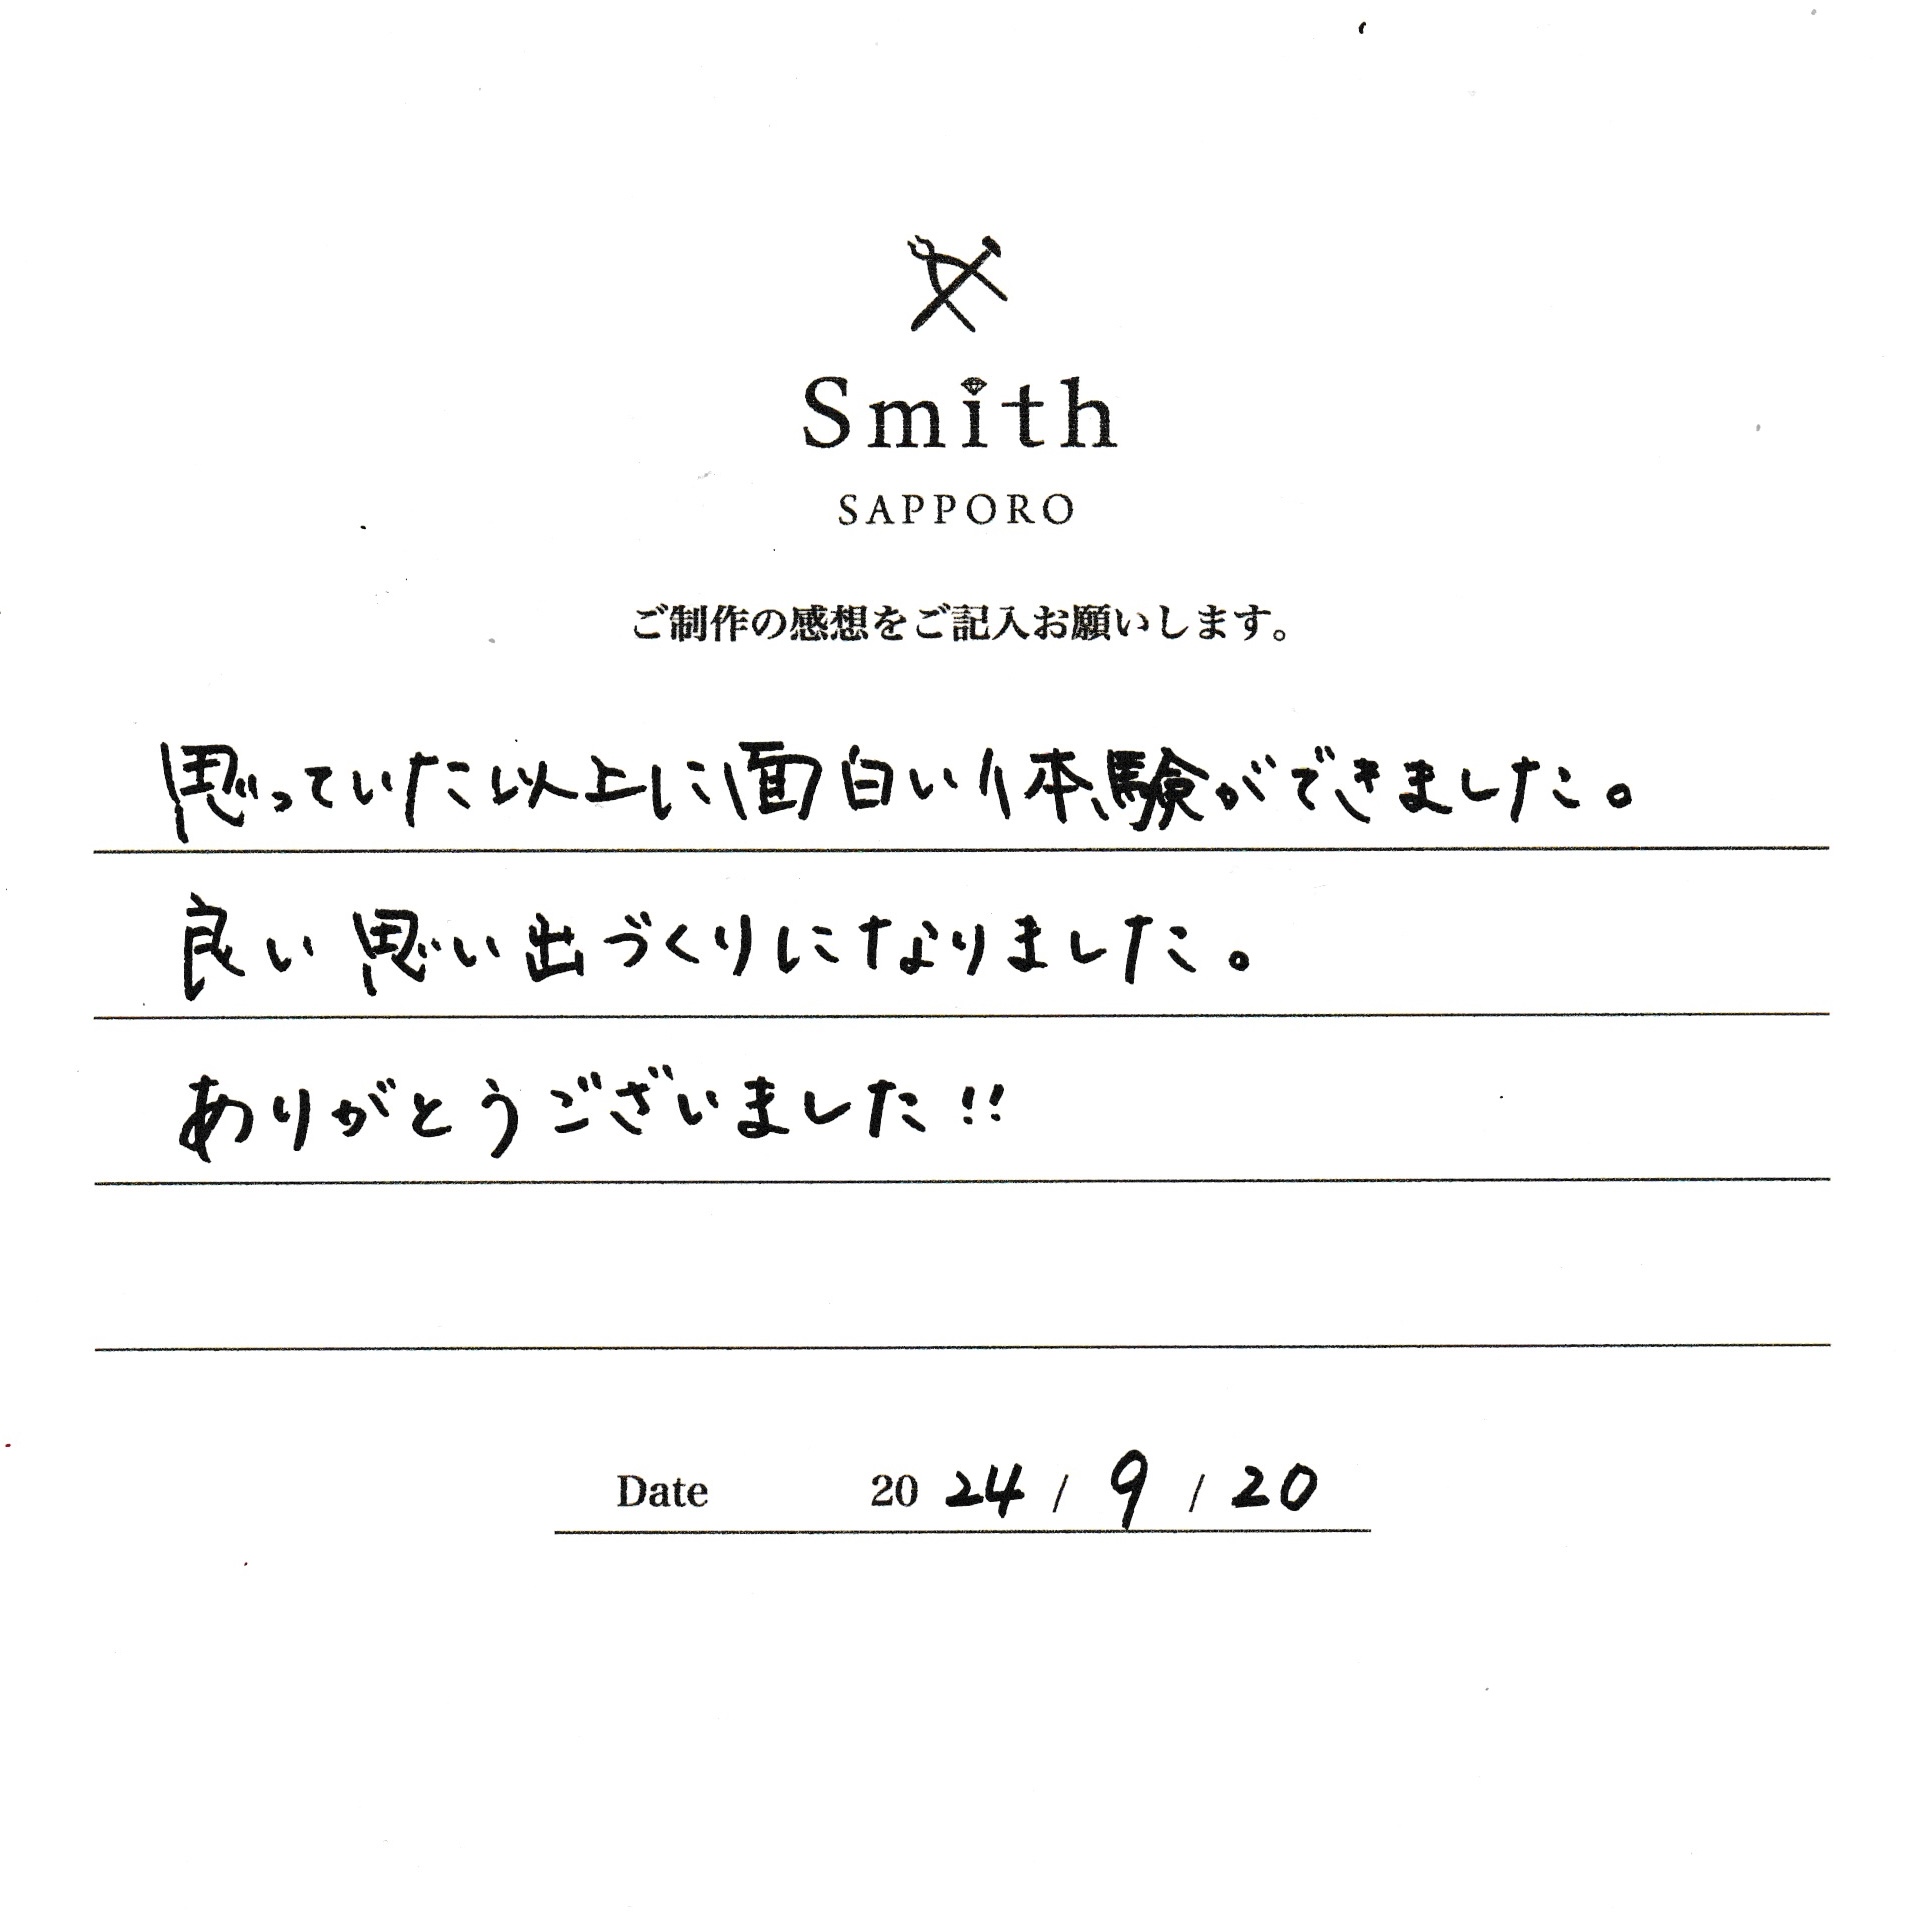 Smith
SAPPORO
ご制作の感想をご記入お願いします。
思っていた以上に面白い体験ができました。
良い思い出づくりになりました。
ありがとうございました!!
Date 2024 / 9 / 20